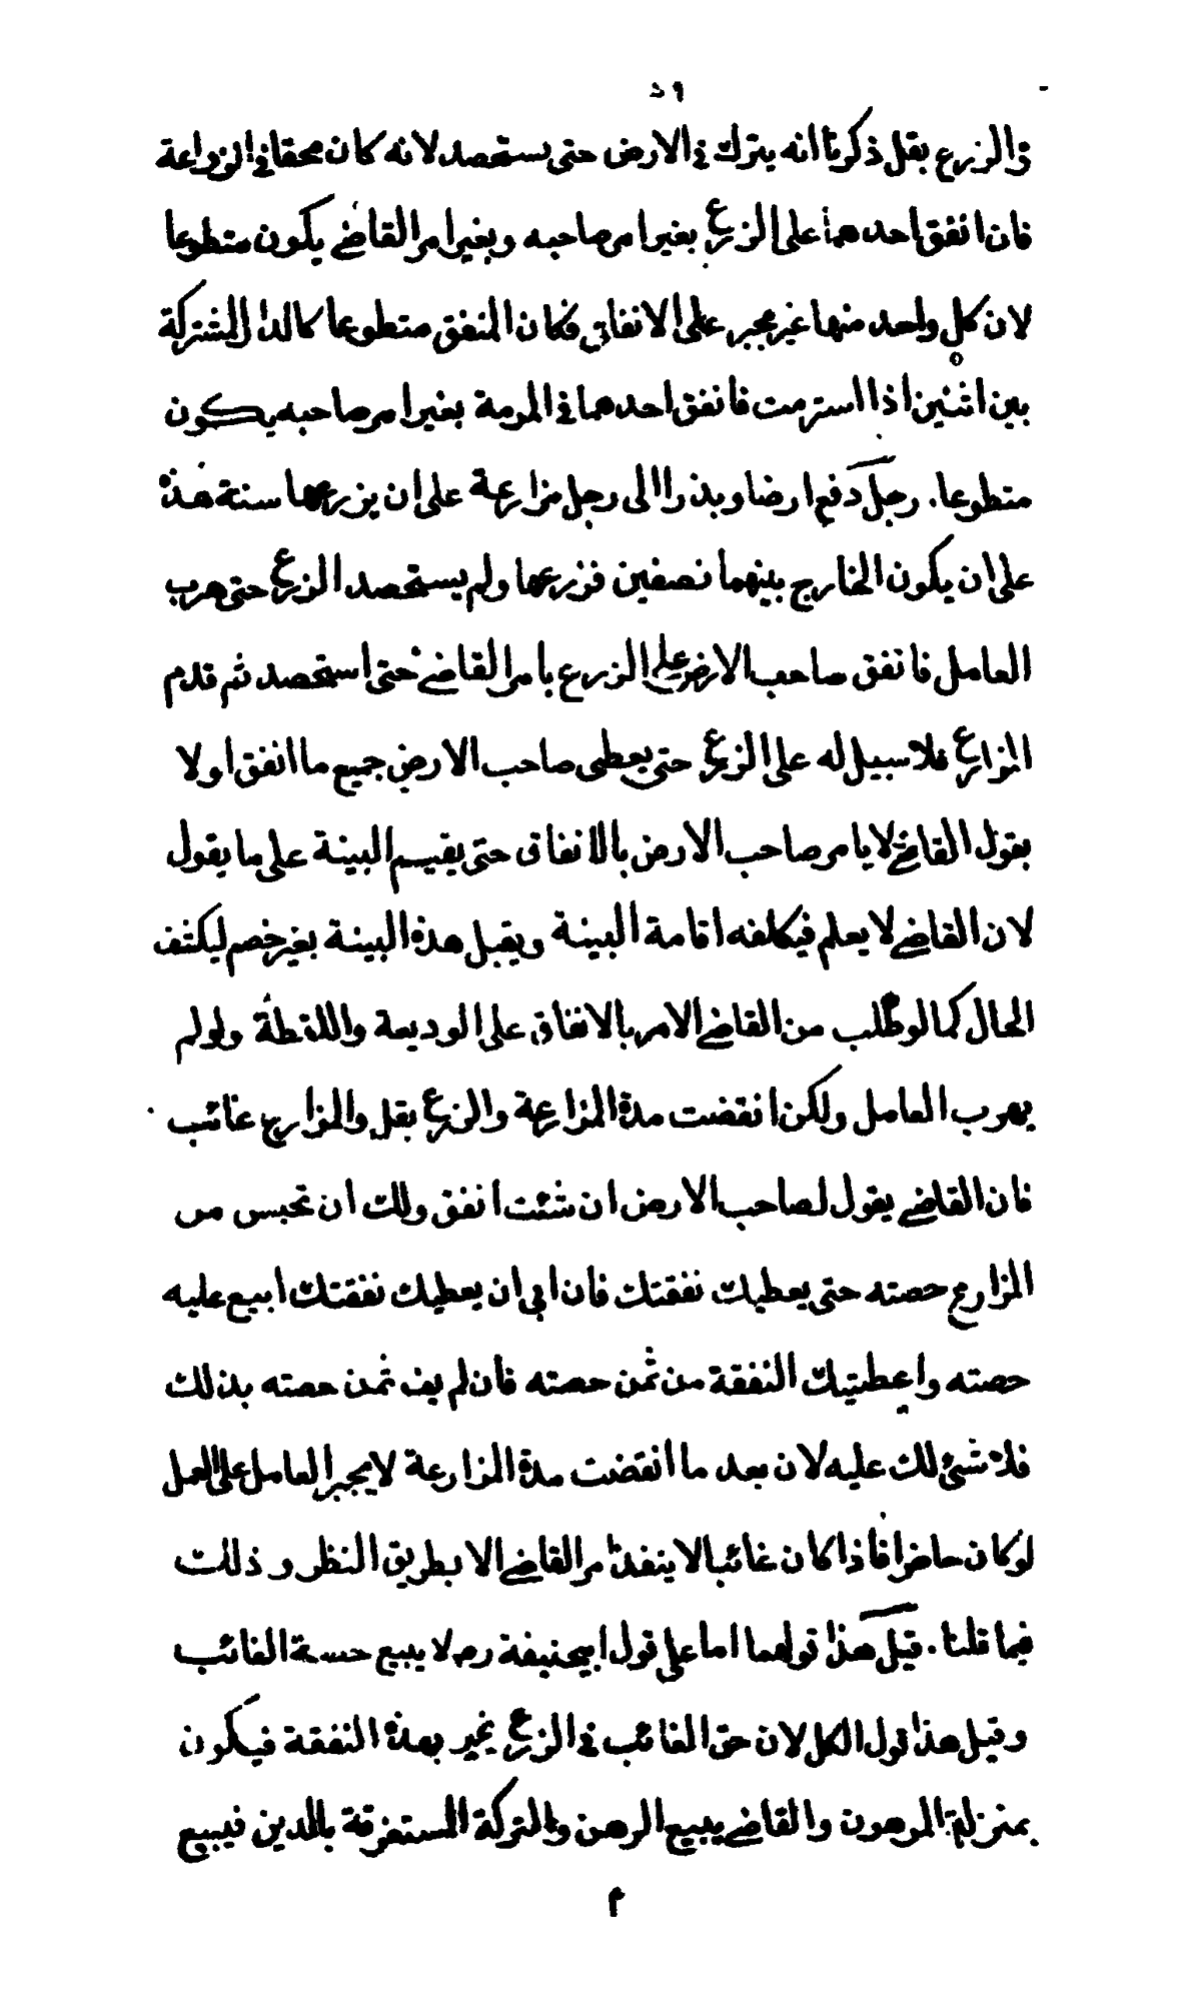 والزرع بقل ذكرنا انه يترك فى الارض حتى يستحصد لانه كان محقا فى الزراعة
فان انفق احدهما على الزرع بغير امر صاحبه وبغير امر القاضى يكون متطوعا
لان كل واحد منهما غير مجبر على الانفاق فكان المنفق متطوعا كالدار المشتركة
بين اثنين اذا استرمت فانفق احدهما فى المرمة بغير امر صاحبه يكون
متطوعا. رجل دفع ارضا وبذرا الى رجل مزارعة على ان يزرعها سنة هذه
على ان يكون الخارج بينهما نصفين فزرعها ولم يستحصد الزرع حتى هرب
العامل فانفق صاحب الارض على الزرع بامر القاضى حتى استحصد ثم قدم
المزارع فلا سبيل له على الزرع حتى يعطى صاحب الارض جميع ما انفق اولا
يقول القاضى لا يامر صاحب الارض بالانفاق حتى يقيم البينة على ما يقول
لان القاضى لا يعلم فيكلفه اقامة البينة ويقبل هذه البينة بغير خصم ليكشف
الحال كما لو طلب من القاضى الامر بالانفاق على الوديعة واللقطة ولو لم
يهرب العامل ولكن انقضت مدة المزارعة والزرع بقل والمزارع غائب
فان القاضى يقول لصاحب الارض ان شئت انفق ولك ان تحبس من
المزارع حصته حتى يعطيك نفقتك فان ابى ان يعطيك نفقتك ابيع عليه
حصته واعطيك النفقة من ثمن حصته فان لم يف ثمن حصته بذلك
فلا شئ لك عليه لان بعد ما انقضت مدة المزارعة لا يجبر العامل على العمل
لو كان حاضرا فاذا كان غائبا لا ينفذ امر القاضى الا بطريق النظر وذلك
فيما قلنا. قيل هذا قولهما اما على قول ابيحنيفة رح لا يبيع حصة الغائب
وقيل هذا قول الكل لان حق الغائب فى الزرع يحير بهذه النفقة فيكون
بمنزلة المرهون والقاضى يبيع الرهن والتركة المستغرقة بالدين فيبيع
م